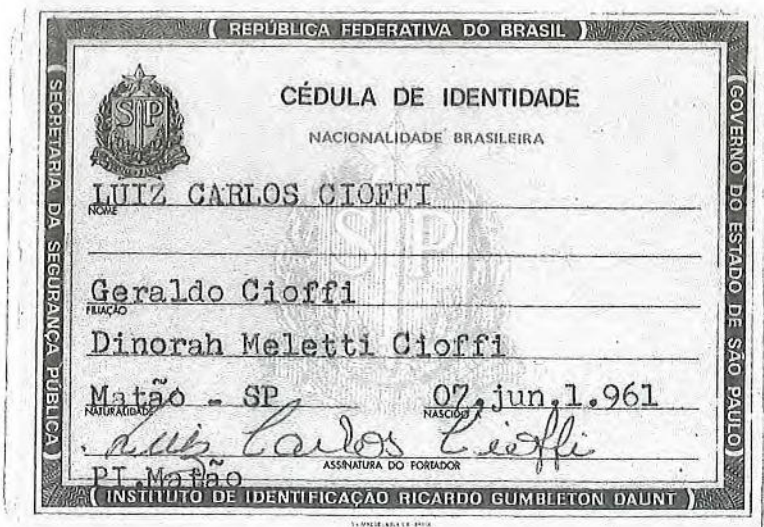 REPÚBLICA FEDERATIVA DO BRASIL
SECRETARIA DA SEGURANÇA PÚBLICA
GOVERNO DO ESTADO DE SÃO PAULO
SP
CÉDULA DE IDENTIDADE
NACIONALIDADE BRASILEIRA
LUIZ CARLOS CIOFFI
NOME
SP
Geraldo Cioffi
FILIAÇÃO
Dinorah Meletti Cioffi
Matão - SP 07.jun.1.961
NATURALIDADE NASCIDO
Luiz Carlos Cioffi
ASSINATURA DO PORTADOR
PI.Matão
INSTITUTO DE IDENTIFICAÇÃO RICARDO GUMBLETON DAUNT